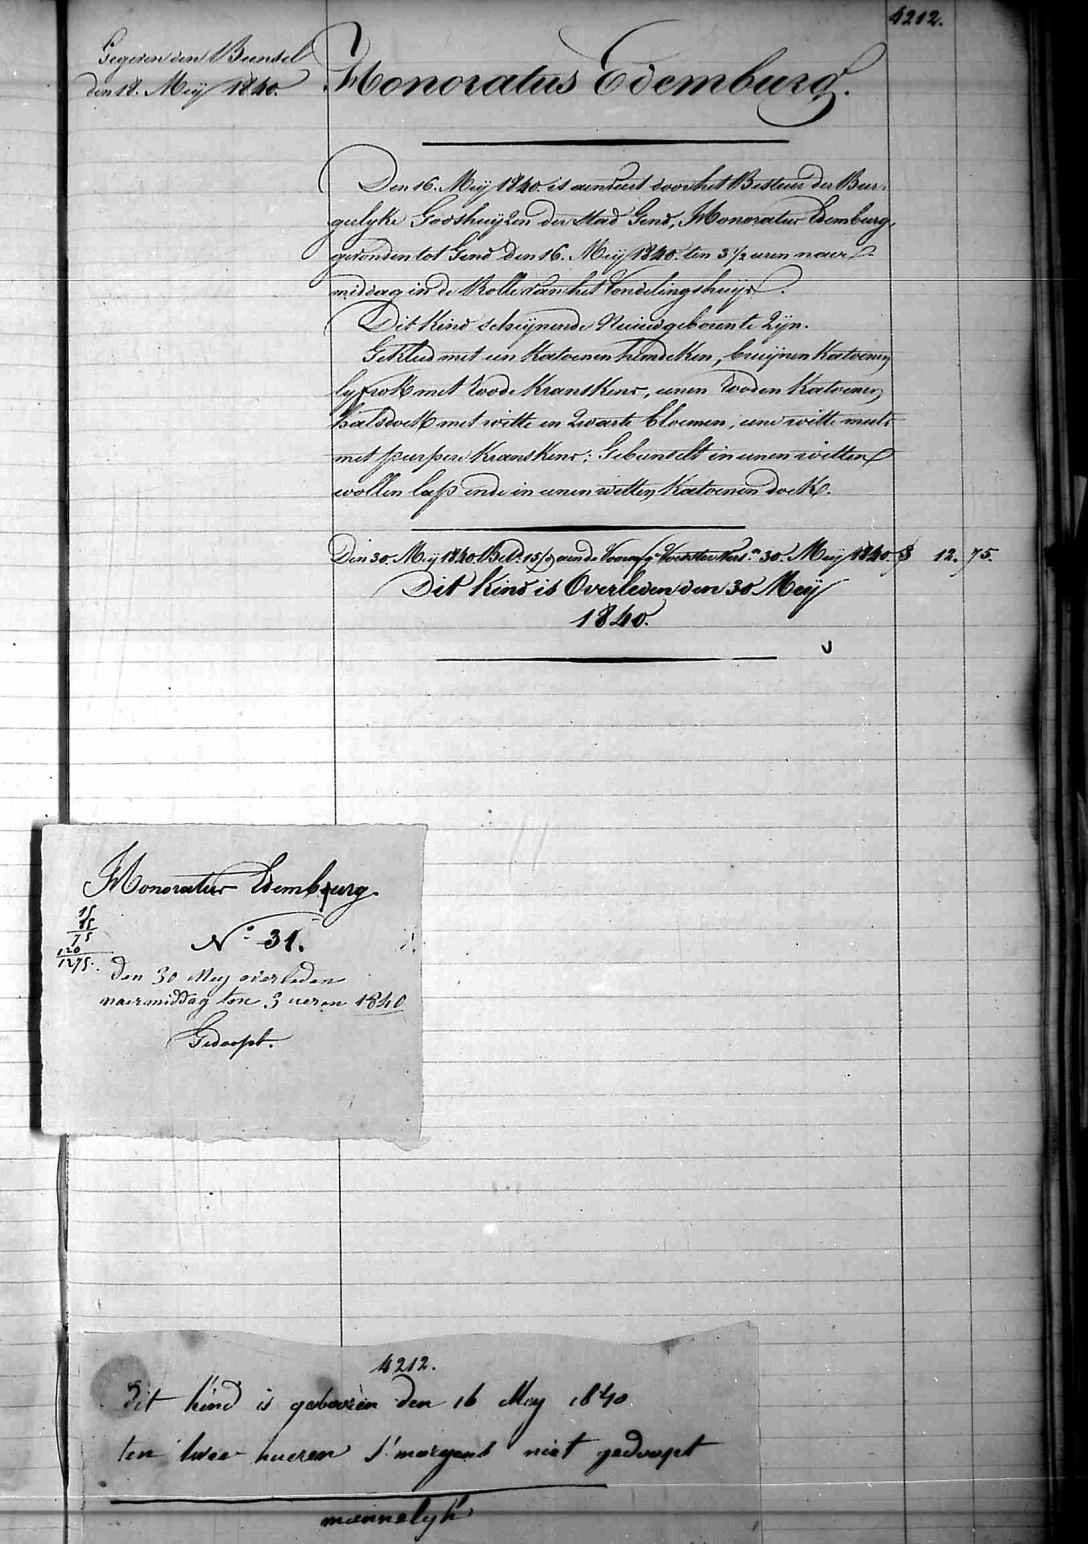 4212.
Gegeven een Bundsel
den 18. Meij 1840.
Honoratus Edemburg.
Den 16. Meij 1840. is aenveert door het Bestier der Bur-
gerlyke Godshuijzen der stad Gend, Honoratus Edemburg,
gevonden tot Gend den 16. Meij 1840. ten 3 1/2 uren naer-
middag in de Rolle van het Vondelingshuijs.
Dit Kind scheijnende Nieuwgeboren te Zijn.
Gekleed met een Katoenen hemdeken, bruijnen Katoenen
lyfrok met roode Kranskens, eenen rooden Katoenen
halsdoek met witte en Zwarte bloemen, eene witte muts
met purpere Kranskens; Gebunselt in eenen witten
wollen lap ende in eenen witten Katoenen doek.
Den 30. Meij 1840. 15/ aen de 30. Meij 1840. 12. 75.
Dit Kind is Overleden den 30 Meij
1840.
Honoratus Edemburg.
15
85
75
120
1275.
N° 31.
den 30 Mey overleden
naermiddag ten 3 ueren 1840
Gedoopt.
4212.
dit kind is geboren den 16 Mey 1840
ten twee hueren s'morgens niet gedoopt
mannelyk